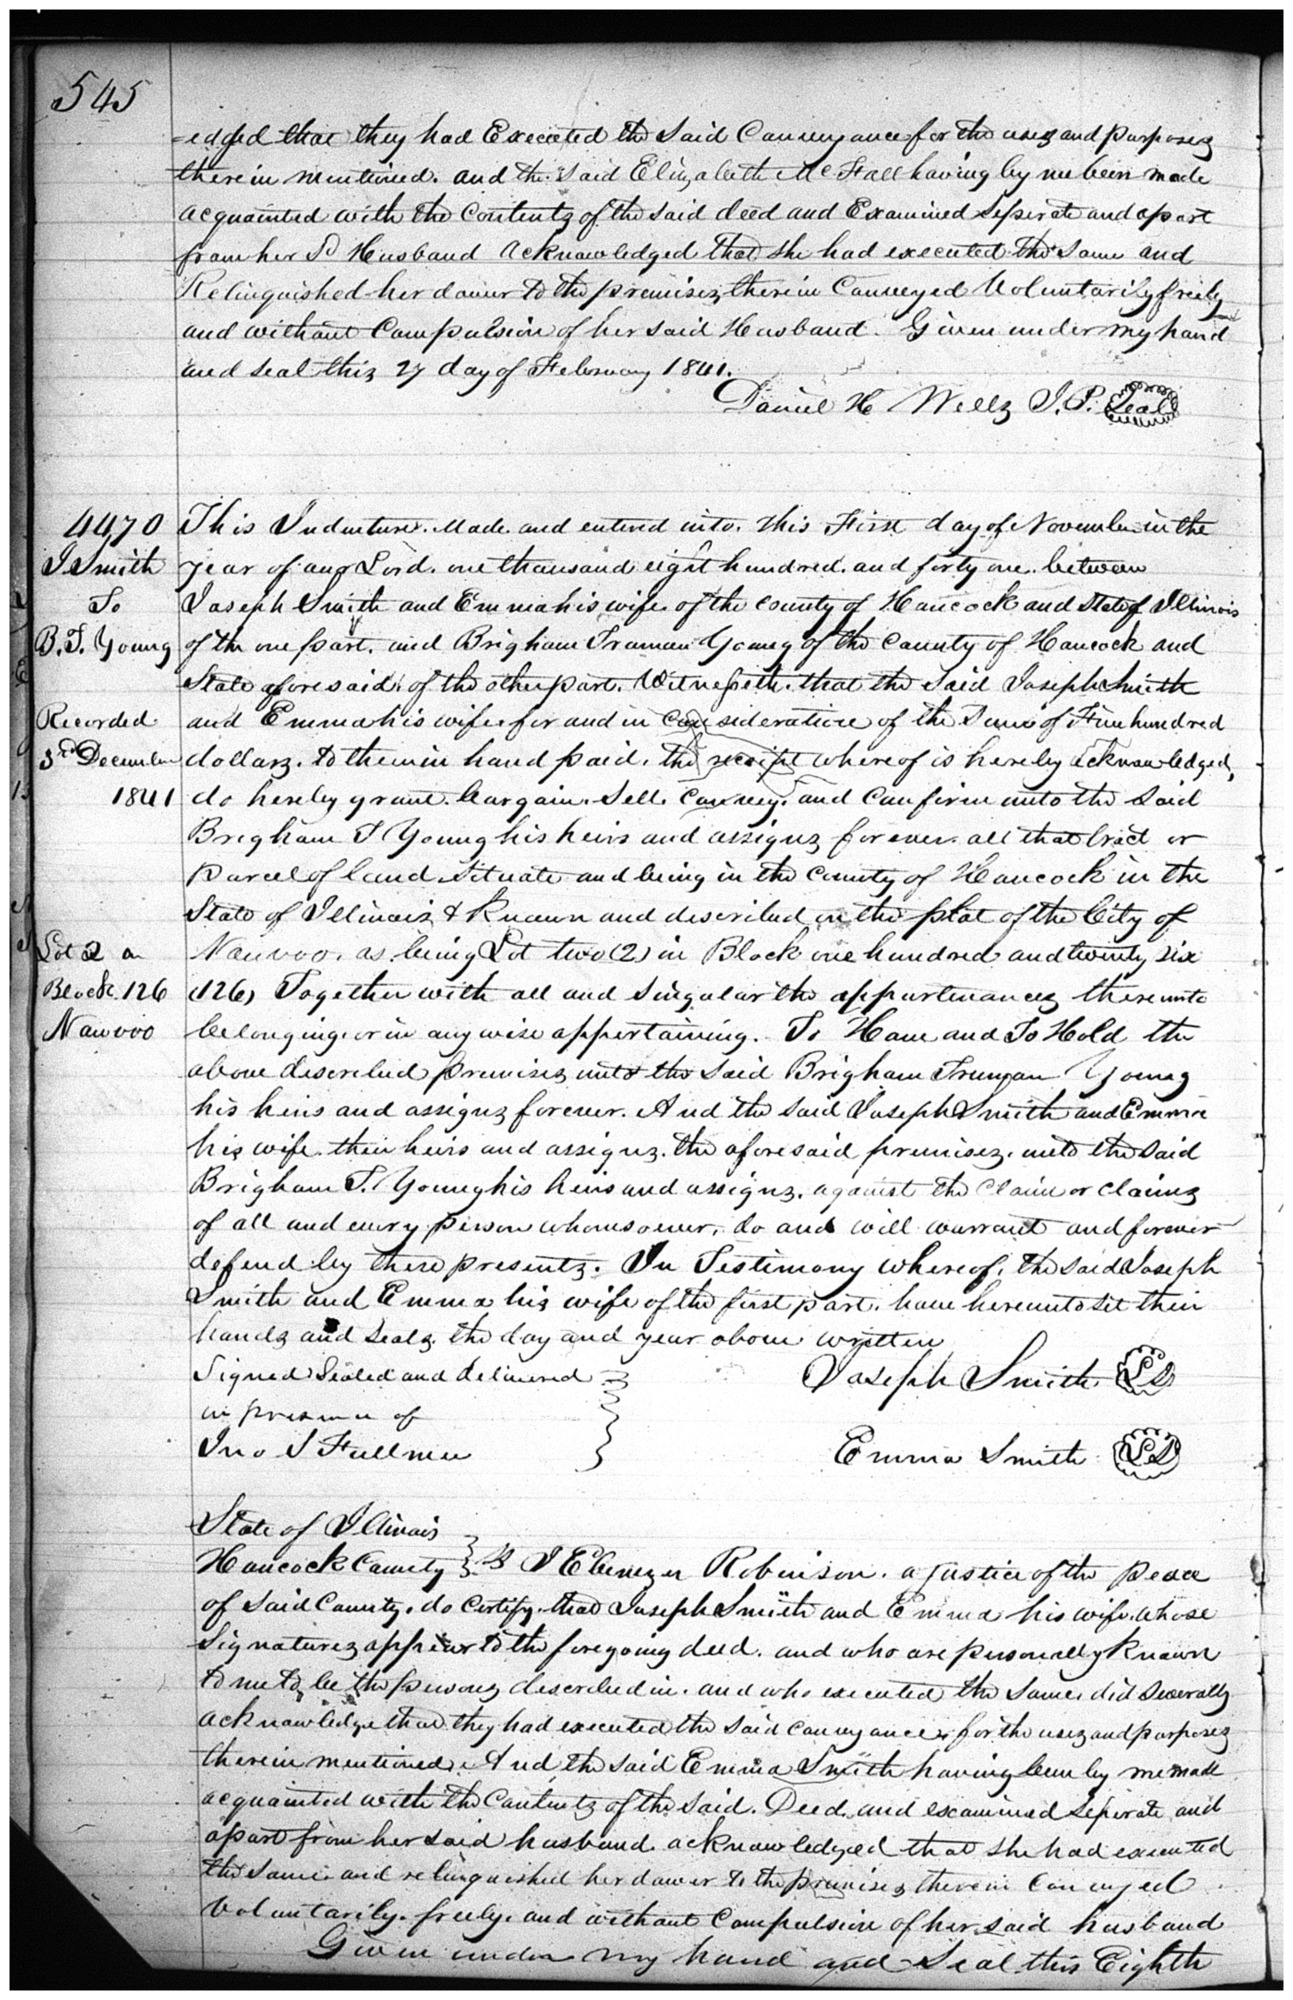 545
=edged that they had Executed the Said Conveyance for the uses and purposes
therein mentioned. and the said Elizabeth McFall having by me been made
acquainted with the Contents of the said deed and Examined Seperate and apart
from her Sd Husband Acknowledged that she had executed the Same and
Relinquished her dower to the premises therein Conveyed Voluntarily freely
and without Compulsion of her said Husband. Given under my hand
and seal this 27 day of February 1841.
Daniel H Wells J.P. Seal
4470
J Smith
To
B. T. Young
Recorded
3rd December
1841
Lot 2 on
Block 126
Nauvoo
This Indenture. Made and entered into. this First day of November in the
year of our Lord. one thousand eight hundred. and forty one. between
Joseph Smith and Emma his wife. of the county of Hancock and State of Illinois
of the one part. and Brigham Truman Young of the County of Hancock and
State aforesaid. of the other part. Witnesseth. that the Said Joseph Smith
and Emma his wife. for and in consideration of the Sum of Five hundred
dollars. to them in hand paid. the receipt whereof is hereby acknowledged,
do hereby grant. bargain. Sell. convey. and confirm unto the Said
Brigham T Young his heirs and assigns forever. all that tract or
parcel of land Situate and being in the County of Hancock in the
State of Illinois & Known and described in the plat of the City of
Nauvoo. as being Lot two (2) in Block one hundred and twenty six
(126) Together with all and Singular the appurtenances thereunto
belonging. or in any wise appertaining. To Have and To Hold the
above described premises unto the Said Brigham Truman Young
his heirs and assigns forever. And the said Joseph Smith and Emma
his wife. their heirs and assigns. the aforesaid premises. unto the said
Brigham T. Young his heirs and assigns. against the Claim or claims
of all and every person whomsoever, do and will warrant and forever
defend by these presents. In Testimony whereof, the said Joseph
Smith and Emma his wife of the first part. have hereunto set their
hands and Seals the day and year above written
Signed Sealed and delivered
in presence of
Jno S Fullmer
Joseph Smith LS
Emma Smith LS
State of Illinois
Hancock County } ss I Ebenezer Robinson. a justice of the peace
of Said County. do certify. that Joseph Smith and Emma his wife. whose
Signatures appear to the foregoing deed. and who are personally known
to me to be the persons described in. and who executed the Same. did Severally
acknowledge that they had executed the said conveyance. for the uses and purposes
therein mentioned. And the said Emma Smith having been by me made
acquainted with the Contents of the said. Deed. and examined Seperate and
apart from her said husband. acknowledged that she had executed
the Same. and relinquished her dower to the premises therein Conveyed
Voluntarily. freely. and without Compulsion of her said husband
Given under my hand and Seal this Eighth